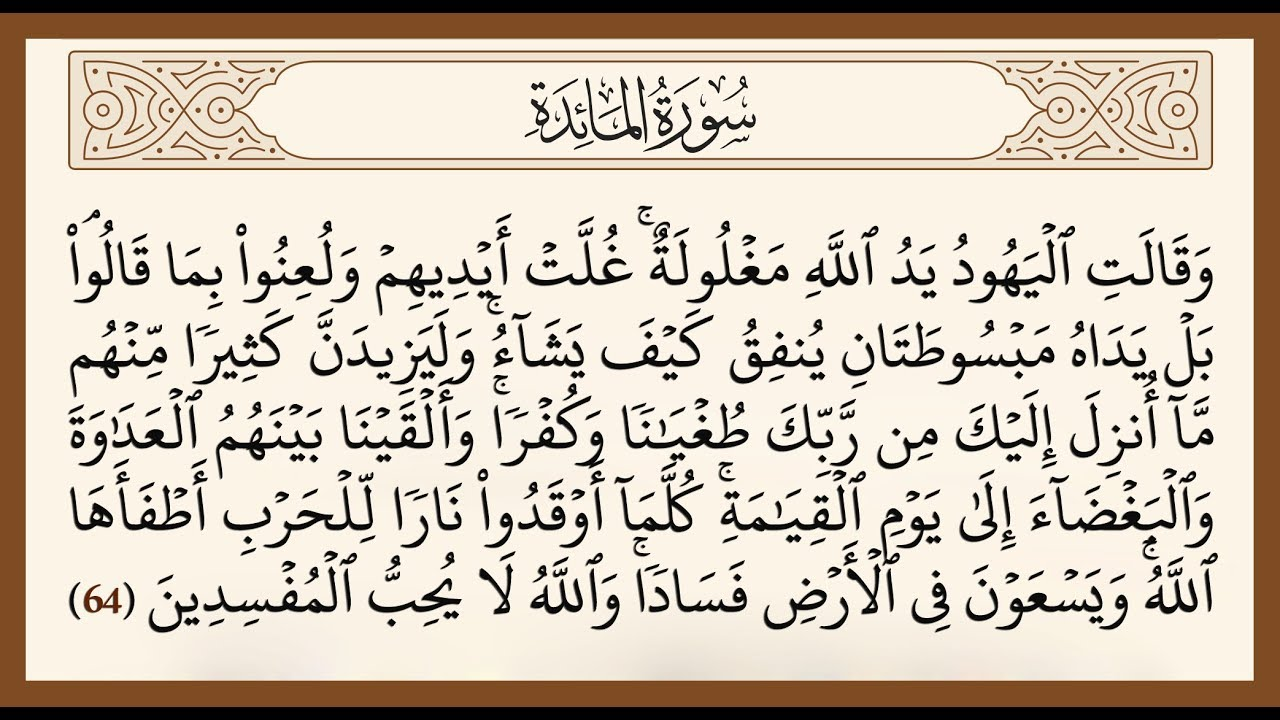 سُورَةُ الْمَائِدَةِ
وَقَالَتِ ٱلۡيَهُودُ يَدُ ٱللَّهِ مَغۡلُولَةٌۚ غُلَّتۡ أَيۡدِيهِمۡ وَلُعِنُواْ بِمَا قَالُواْۘ
بَلۡ يَدَاهُ مَبۡسُوطَتَانِ يُنفِقُ كَيۡفَ يَشَآءُۚ وَلَيَزِيدَنَّ كَثِيرٗا مِّنۡهُم
مَّآ أُنزِلَ إِلَيۡكَ مِن رَّبِّكَ طُغۡيَٰنٗا وَكُفۡرٗاۚ وَأَلۡقَيۡنَا بَيۡنَهُمُ ٱلۡعَدَٰوَةَ
وَٱلۡبَغۡضَآءَ إِلَىٰ يَوۡمِ ٱلۡقِيَٰمَةِۚ كُلَّمَآ أَوۡقَدُواْ نَارٗا لِّلۡحَرۡبِ أَطۡفَأَهَا
ٱللَّهُۚ وَيَسۡعَوۡنَ فِي ٱلۡأَرۡضِ فَسَادٗاۚ وَٱللَّهُ لَا يُحِبُّ ٱلۡمُفۡسِدِينَ (64)